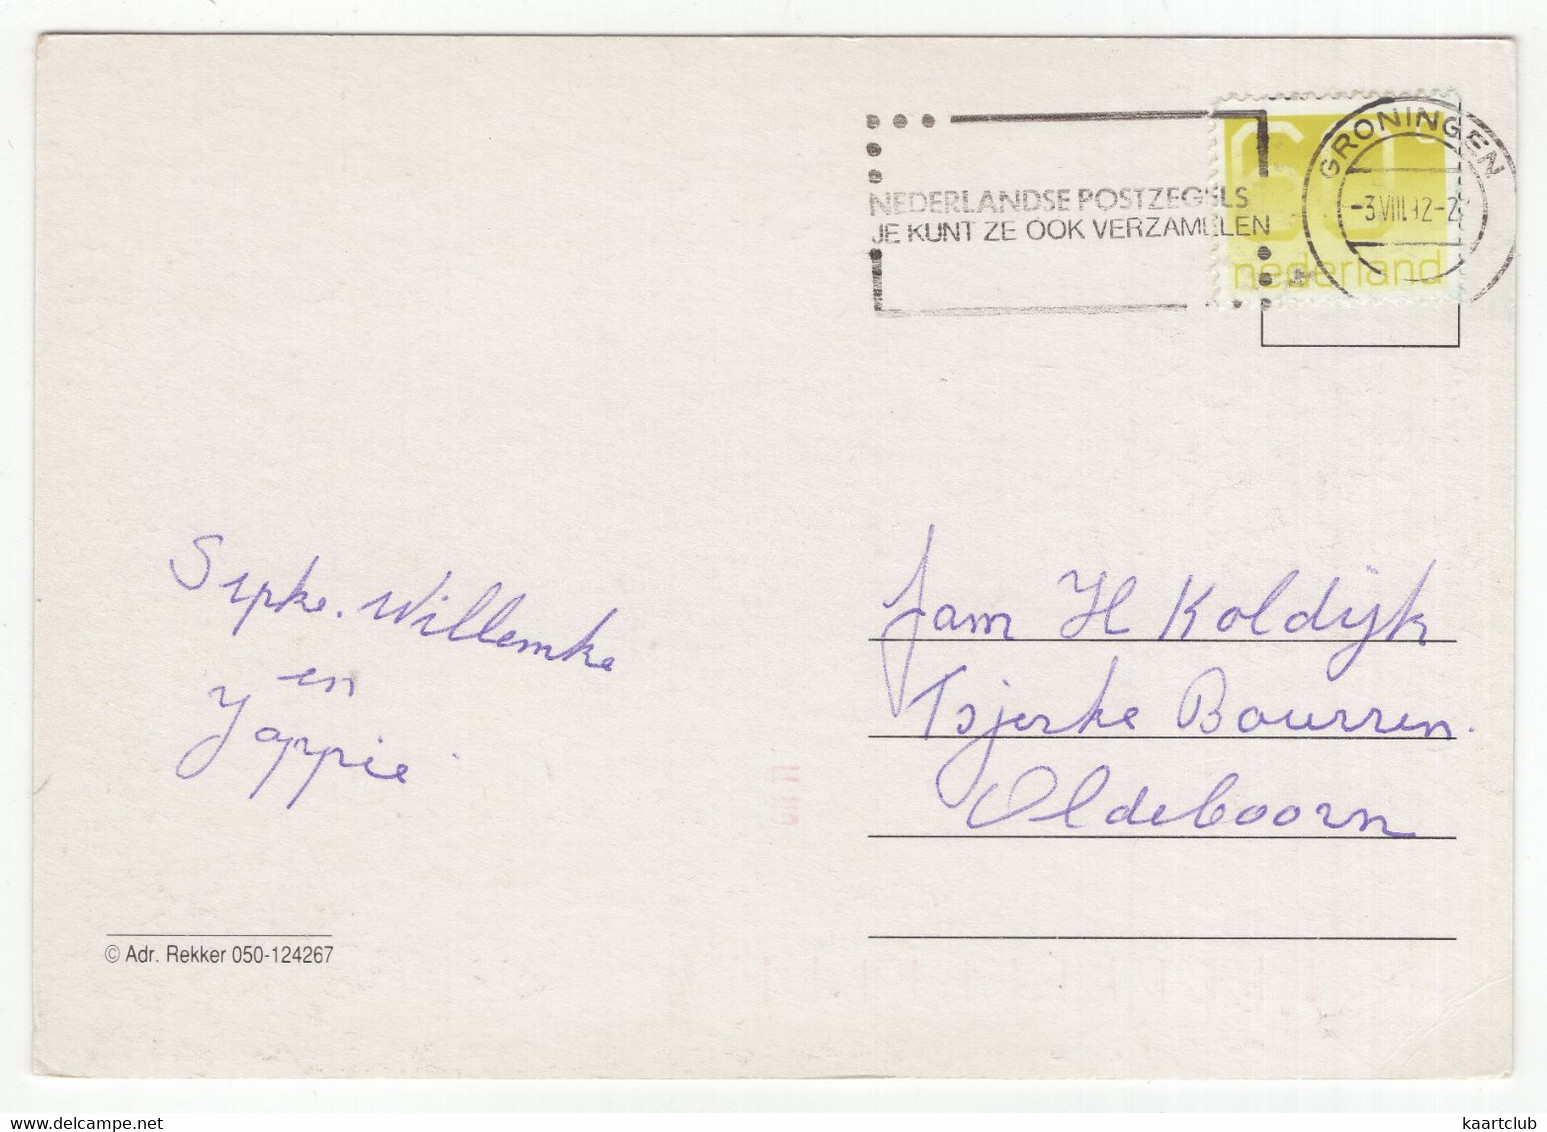 NEDERLANDSE POSTZEGELS
JE KUNT ZE OOK VERZAMELEN
60
nederland
GRONINGEN
-3.VIII.92-2
Sipke. Willemke
en
Jappie
Jam H Koldijk
Tsjerke Bourren.
Oldeboorn
© Adr. Rekker 050-124267
kaartclub
www.delcampe.net